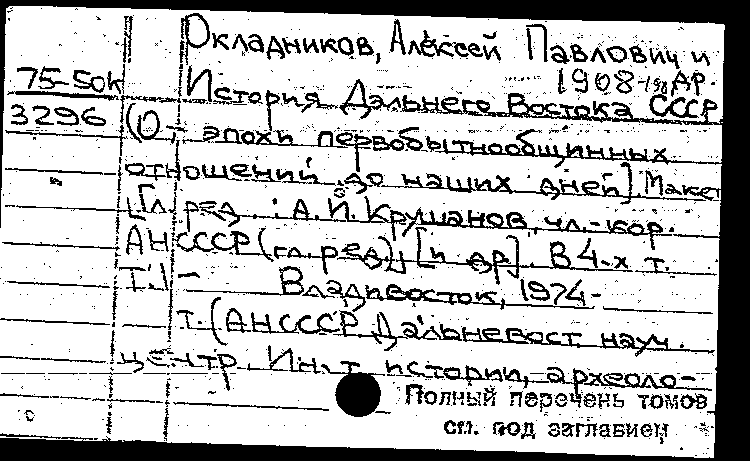 Окладников, Алексей Павлович и
1908-1981 др.
75-50к История Дальнего Востока СССР
3296 (От эпохи первобытнообщинных
отношений до наших дней]. Макет
[Гл. ред.: А. И. Крушанов, чл.-кор.
АН СССР (гл. ред.), [и др]. В 4-х т.
Т. 1 - Владивосток, 1974-
т. (АН СССР Дальневост науч.
центр. Ин-т истории, археоло-
Полный перечень томов
см. под заглавием